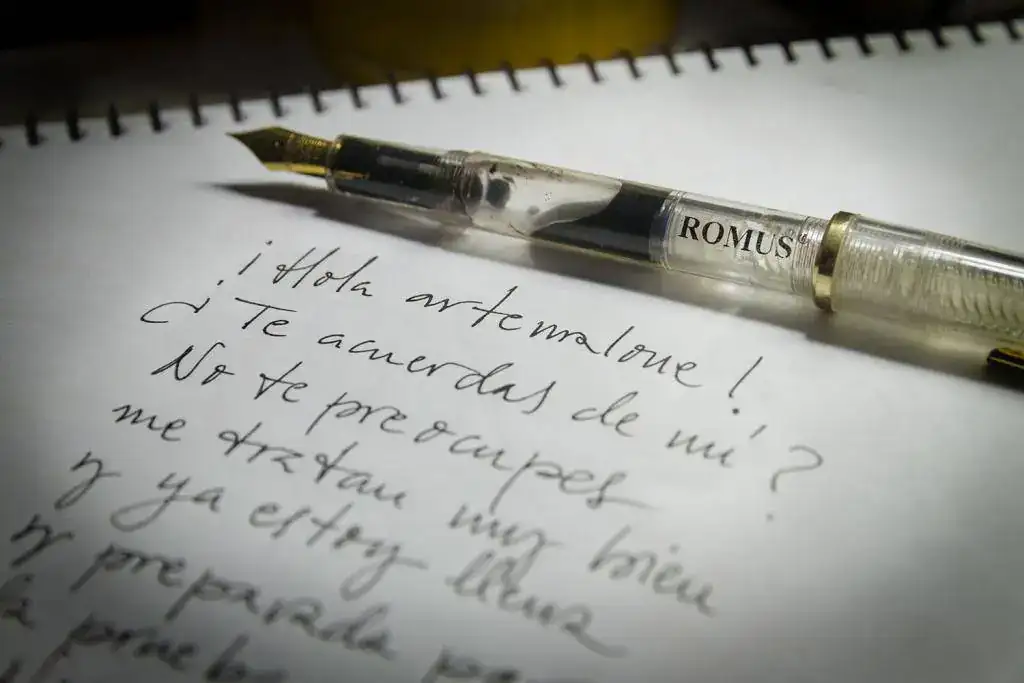 ROMUS
¡Hola artemalone!
¿Te acuerdas de mí?
No te preocupes
me tratan muy bien
y ya estoy llena
y preparada
la prueba